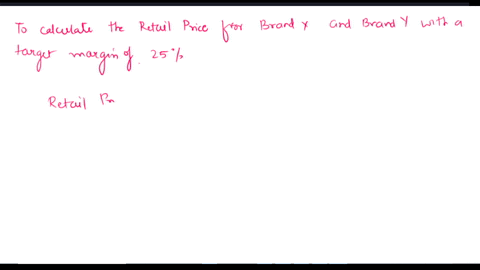 To calculate the Retail Price for Brand X and Brand Y with a
target margin of 25%
Retail Pr